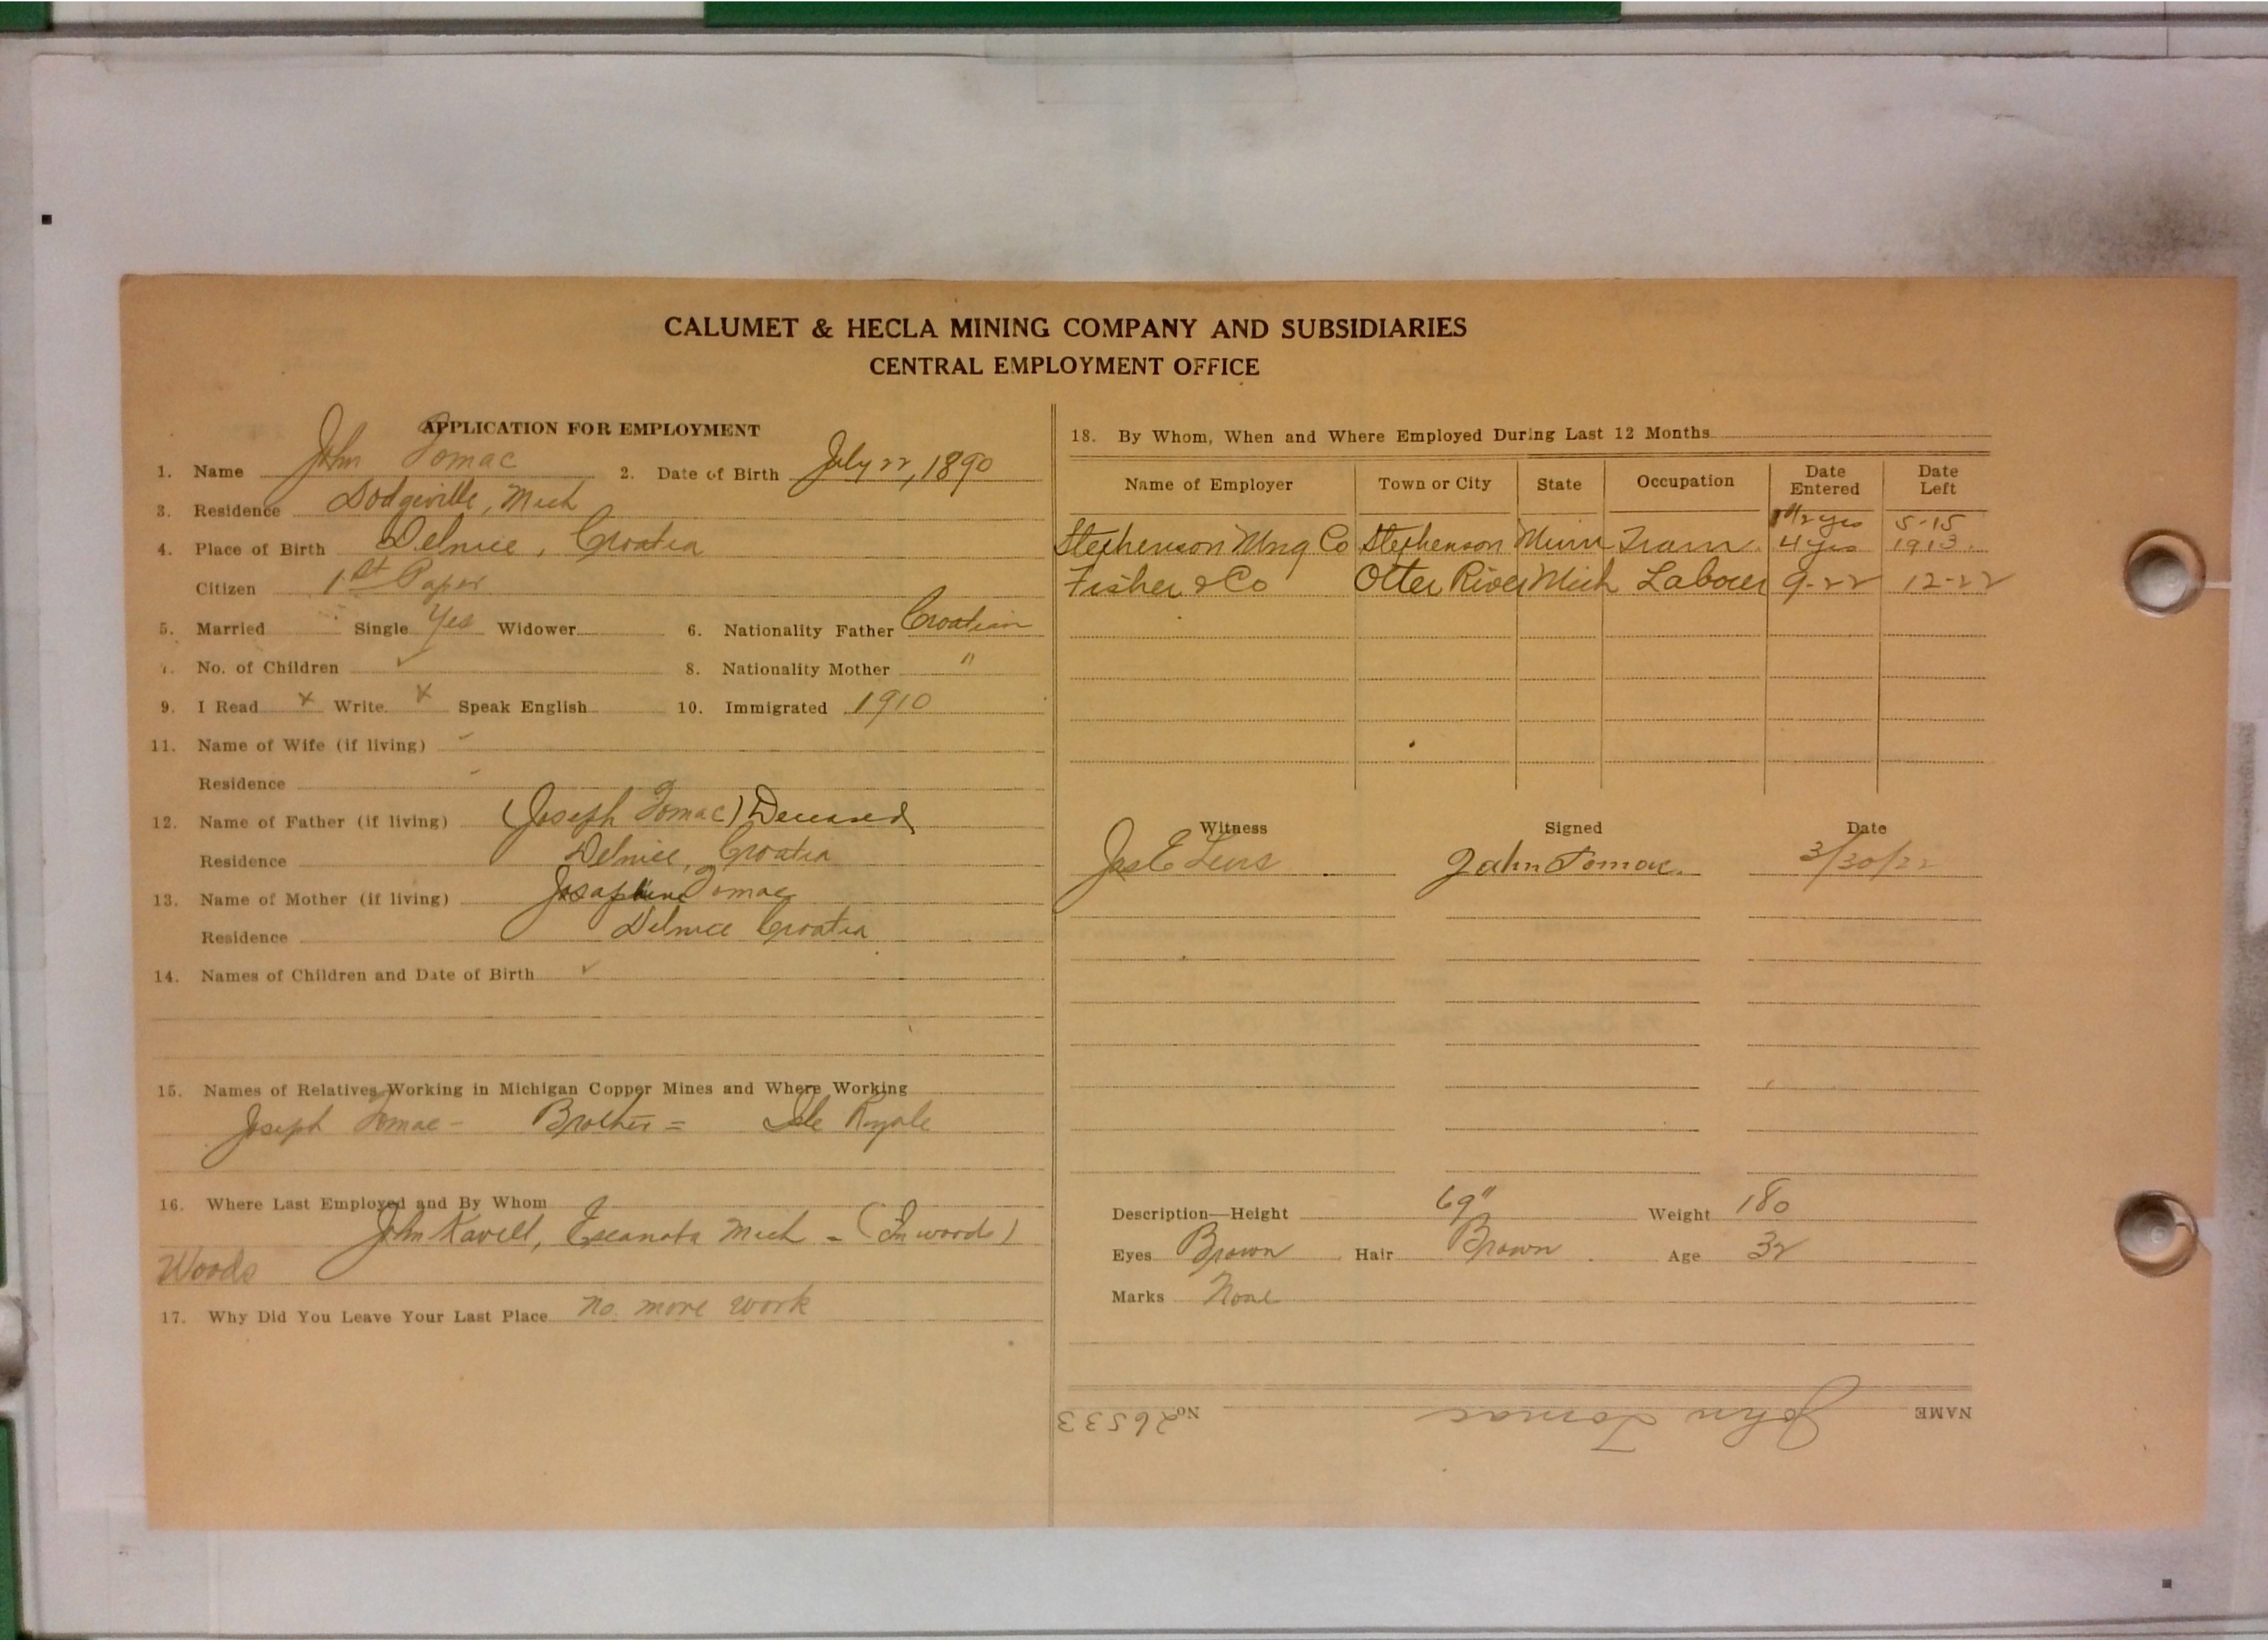 CALUMET & HECLA MINING COMPANY AND SUBSIDIARIES
CENTRAL EMPLOYMENT OFFICE
APPLICATION FOR EMPLOYMENT
1. Name John Tomac 2. Date of Birth July 22, 1890
3. Residence Dodgeville, Mich
4. Place of Birth Delnice, Croatia
Citizen 1st Paper
5. Married Single Yes Widower 6. Nationality Father Croatian
7. No. of Children ✓ 8. Nationality Mother "
9. I Read x Write x Speak English 10. Immigrated 1910
11. Name of Wife (if living)
Residence
12. Name of Father (if living) (Joseph Tomac) Deceased
Residence Delnice, Croatia
13. Name of Mother (if living) Josaphine Tomac
Residence Delnice Croatia
14. Names of Children and Date of Birth ✓
15. Names of Relatives Working in Michigan Copper Mines and Where Working
Joseph Tomac - Brother = Isle Royale
16. Where Last Employed and By Whom
John Kavell, Escanaba Mich - (In woods)
Woods
17. Why Did You Leave Your Last Place no more work
18. By Whom, When and Where Employed During Last 12 Months
Name of Employer Town or City State Occupation Date Entered Date Left
1 1/2 yrs 5-15
Stephenson Mng Co Stephenson Minn Tram 4 yrs 1913.
Fisher & Co Otter River Mich Labouer 9-22 12-22
Witness Signed Date
Jas E John Tomac. 3/30/22
Description—Height 69" Weight 180
Eyes Brown Hair Brown Age 32
Marks None
NAME John Tomac No. 26533